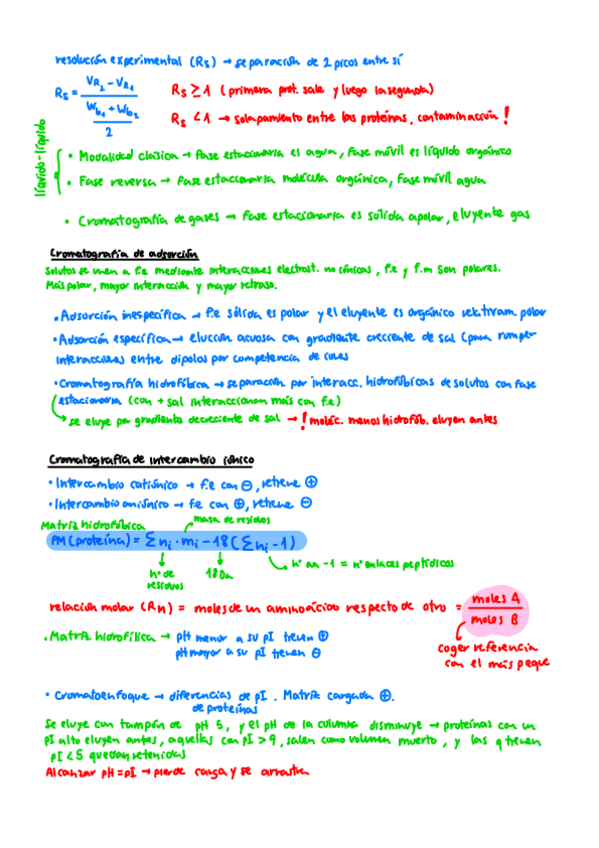 resolución experimental (Rs) → separación de 2 picos entre sí
Rs = (VR2 - VR1) / ((Wb1 + Wb2) / 2)
Rs ≥ 1 (primera prot. sale y luego la segunda)
Rs < 1 → solapamiento entre las proteínas, contaminación!
líquido-líquido
• Modalidad clásica → Fase estacionaria es agua, Fase móvil es líquido orgánico
• Fase reversa → Fase estacionaria molécula orgánica, Fase móvil agua
• Cromatografía de gases → Fase estacionaria es sólida apolar, eluyente gas
Cromatografía de adsorción
Solutos se unen a f.e mediante interacciones electrost. no iónicas, f.e y f.m son polares.
Más polar, mayor interacción y mayor retraso.
• Adsorción inespecífica → f.e sólida es polar y el eluyente es orgánico relativam. polar
• Adsorción específica → elución acuosa con gradiente creciente de sal (para romper
interacciones entre dipolos por competencia de iones
• Cromatografía hidrofóbica → separación por interacc. hidrofóbicas de solutos con fase
estacionaria (con + sal interaccionan más con f.e)
→ se eluye por gradiente decreciente de sal → ! moléc. menos hidrofób. eluyen antes
Cromatografía de intercambio iónico
• Intercambio catiónico → f.e con ⊖, retiene ⊕
• Intercambio aniónico → f.e con ⊕, retiene ⊖
Matriz hidrofóbica
masa de residuos
PM (proteína) = Σni · mi - 18 (Σni - 1)
nº de residuos
18 Da
nº aa - 1 = nº enlaces peptídicos
relación molar (RM) = moles de un aminoácido respecto de otro = moles A / moles B
coger referencia
con el más peque
• Matriz hidrofílica → pH menor a su pI tienen ⊕
pH mayor a su pI tienen ⊖
• Cromatoenfoque → diferencias de pI. Matriz cargada ⊕.
de proteínas
Se eluye con tampón de pH 5, y el pH de la columna disminuye → proteínas con un
pI alto eluyen antes, aquellas con pI > 9, salen como volumen muerto, y las q tienen
pI < 5 quedan retenidas
Alcanzar pH = pI → pierde carga y se arrastra